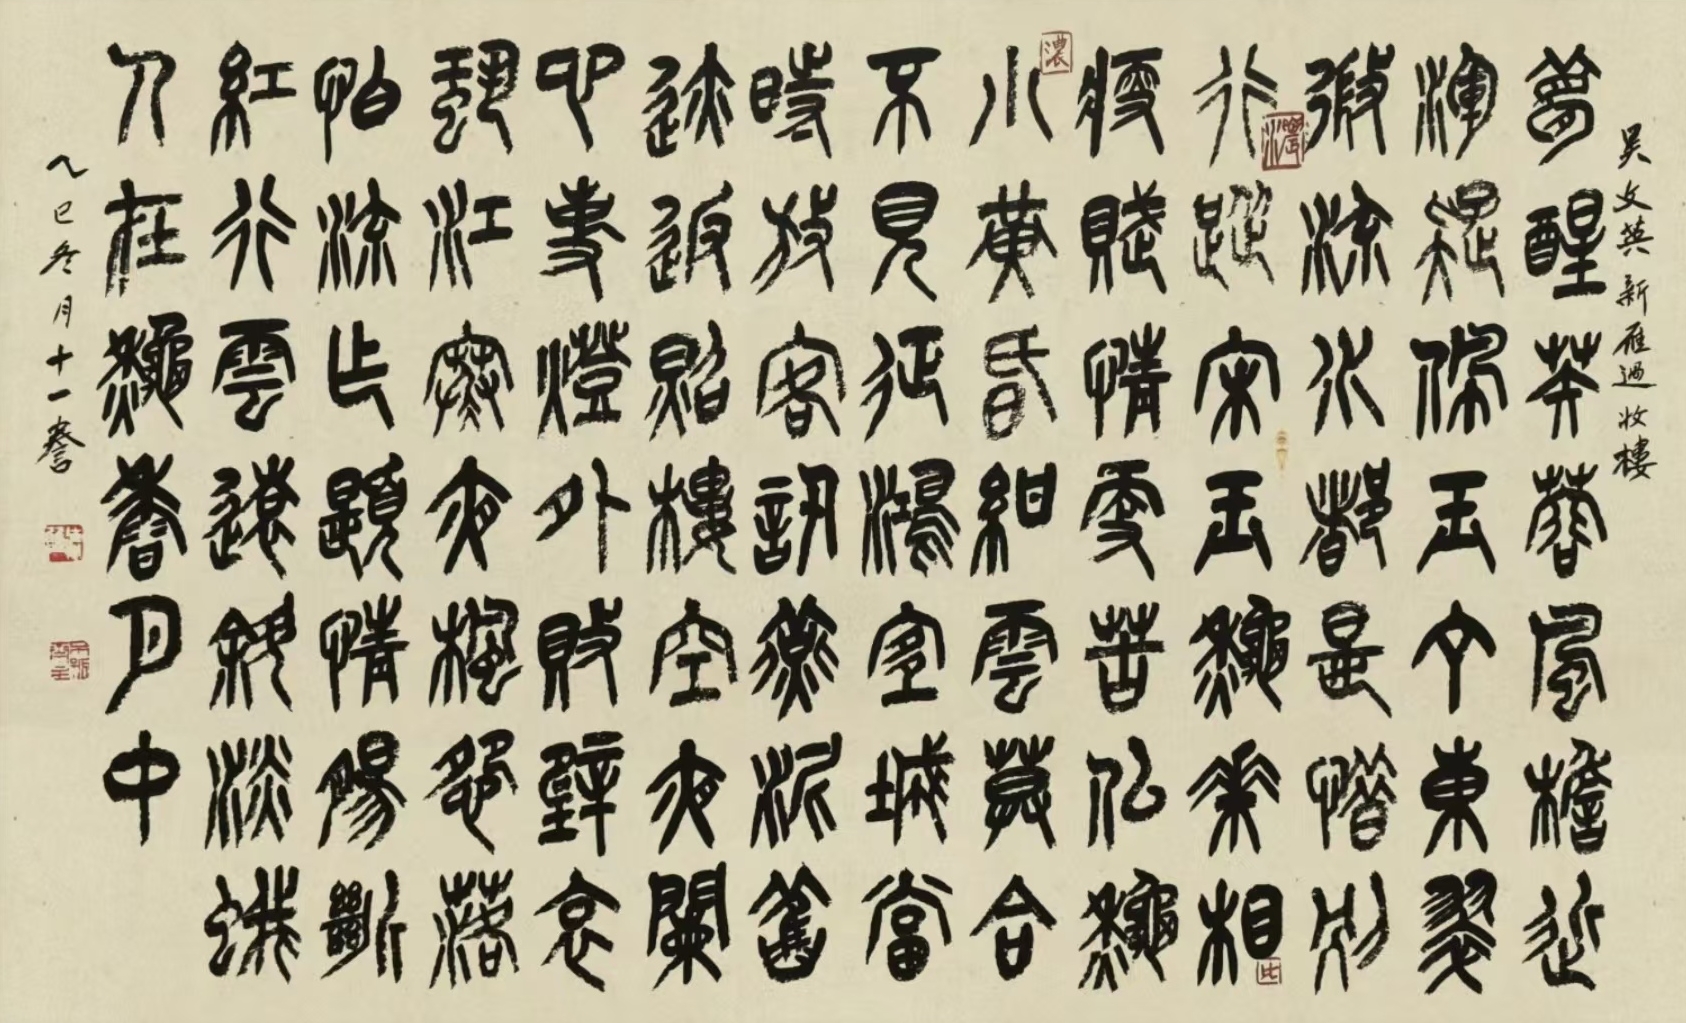 吳文英新雁過妝樓
夢醒芙蓉風檐近
渾疑佩玉丁東翠
微流水都是惜別
行蹤宋玉秋華相比
瘦賦情更苦似秋濃
小黃昏紺雲暮合
不見征鴻宜城當
時放客認燕泥舊
迹返照樓空夜闌
心事燈外敗壁哀
蛩江寒夜楓怨落
怕流作題情腸斷
紅行雲遠料淡蛾
人在秋香月中
乙巳冬月十一